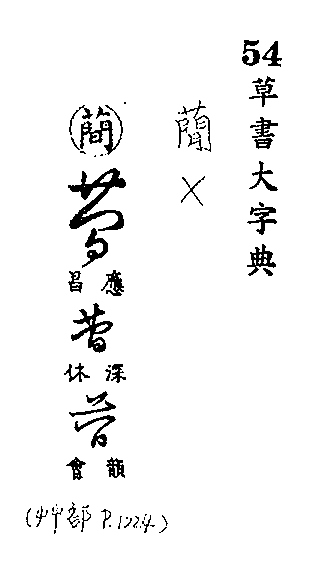 54
草書大字典
蕑
×
蕳
應昌
深休
韻會
(艸部 P.1224)